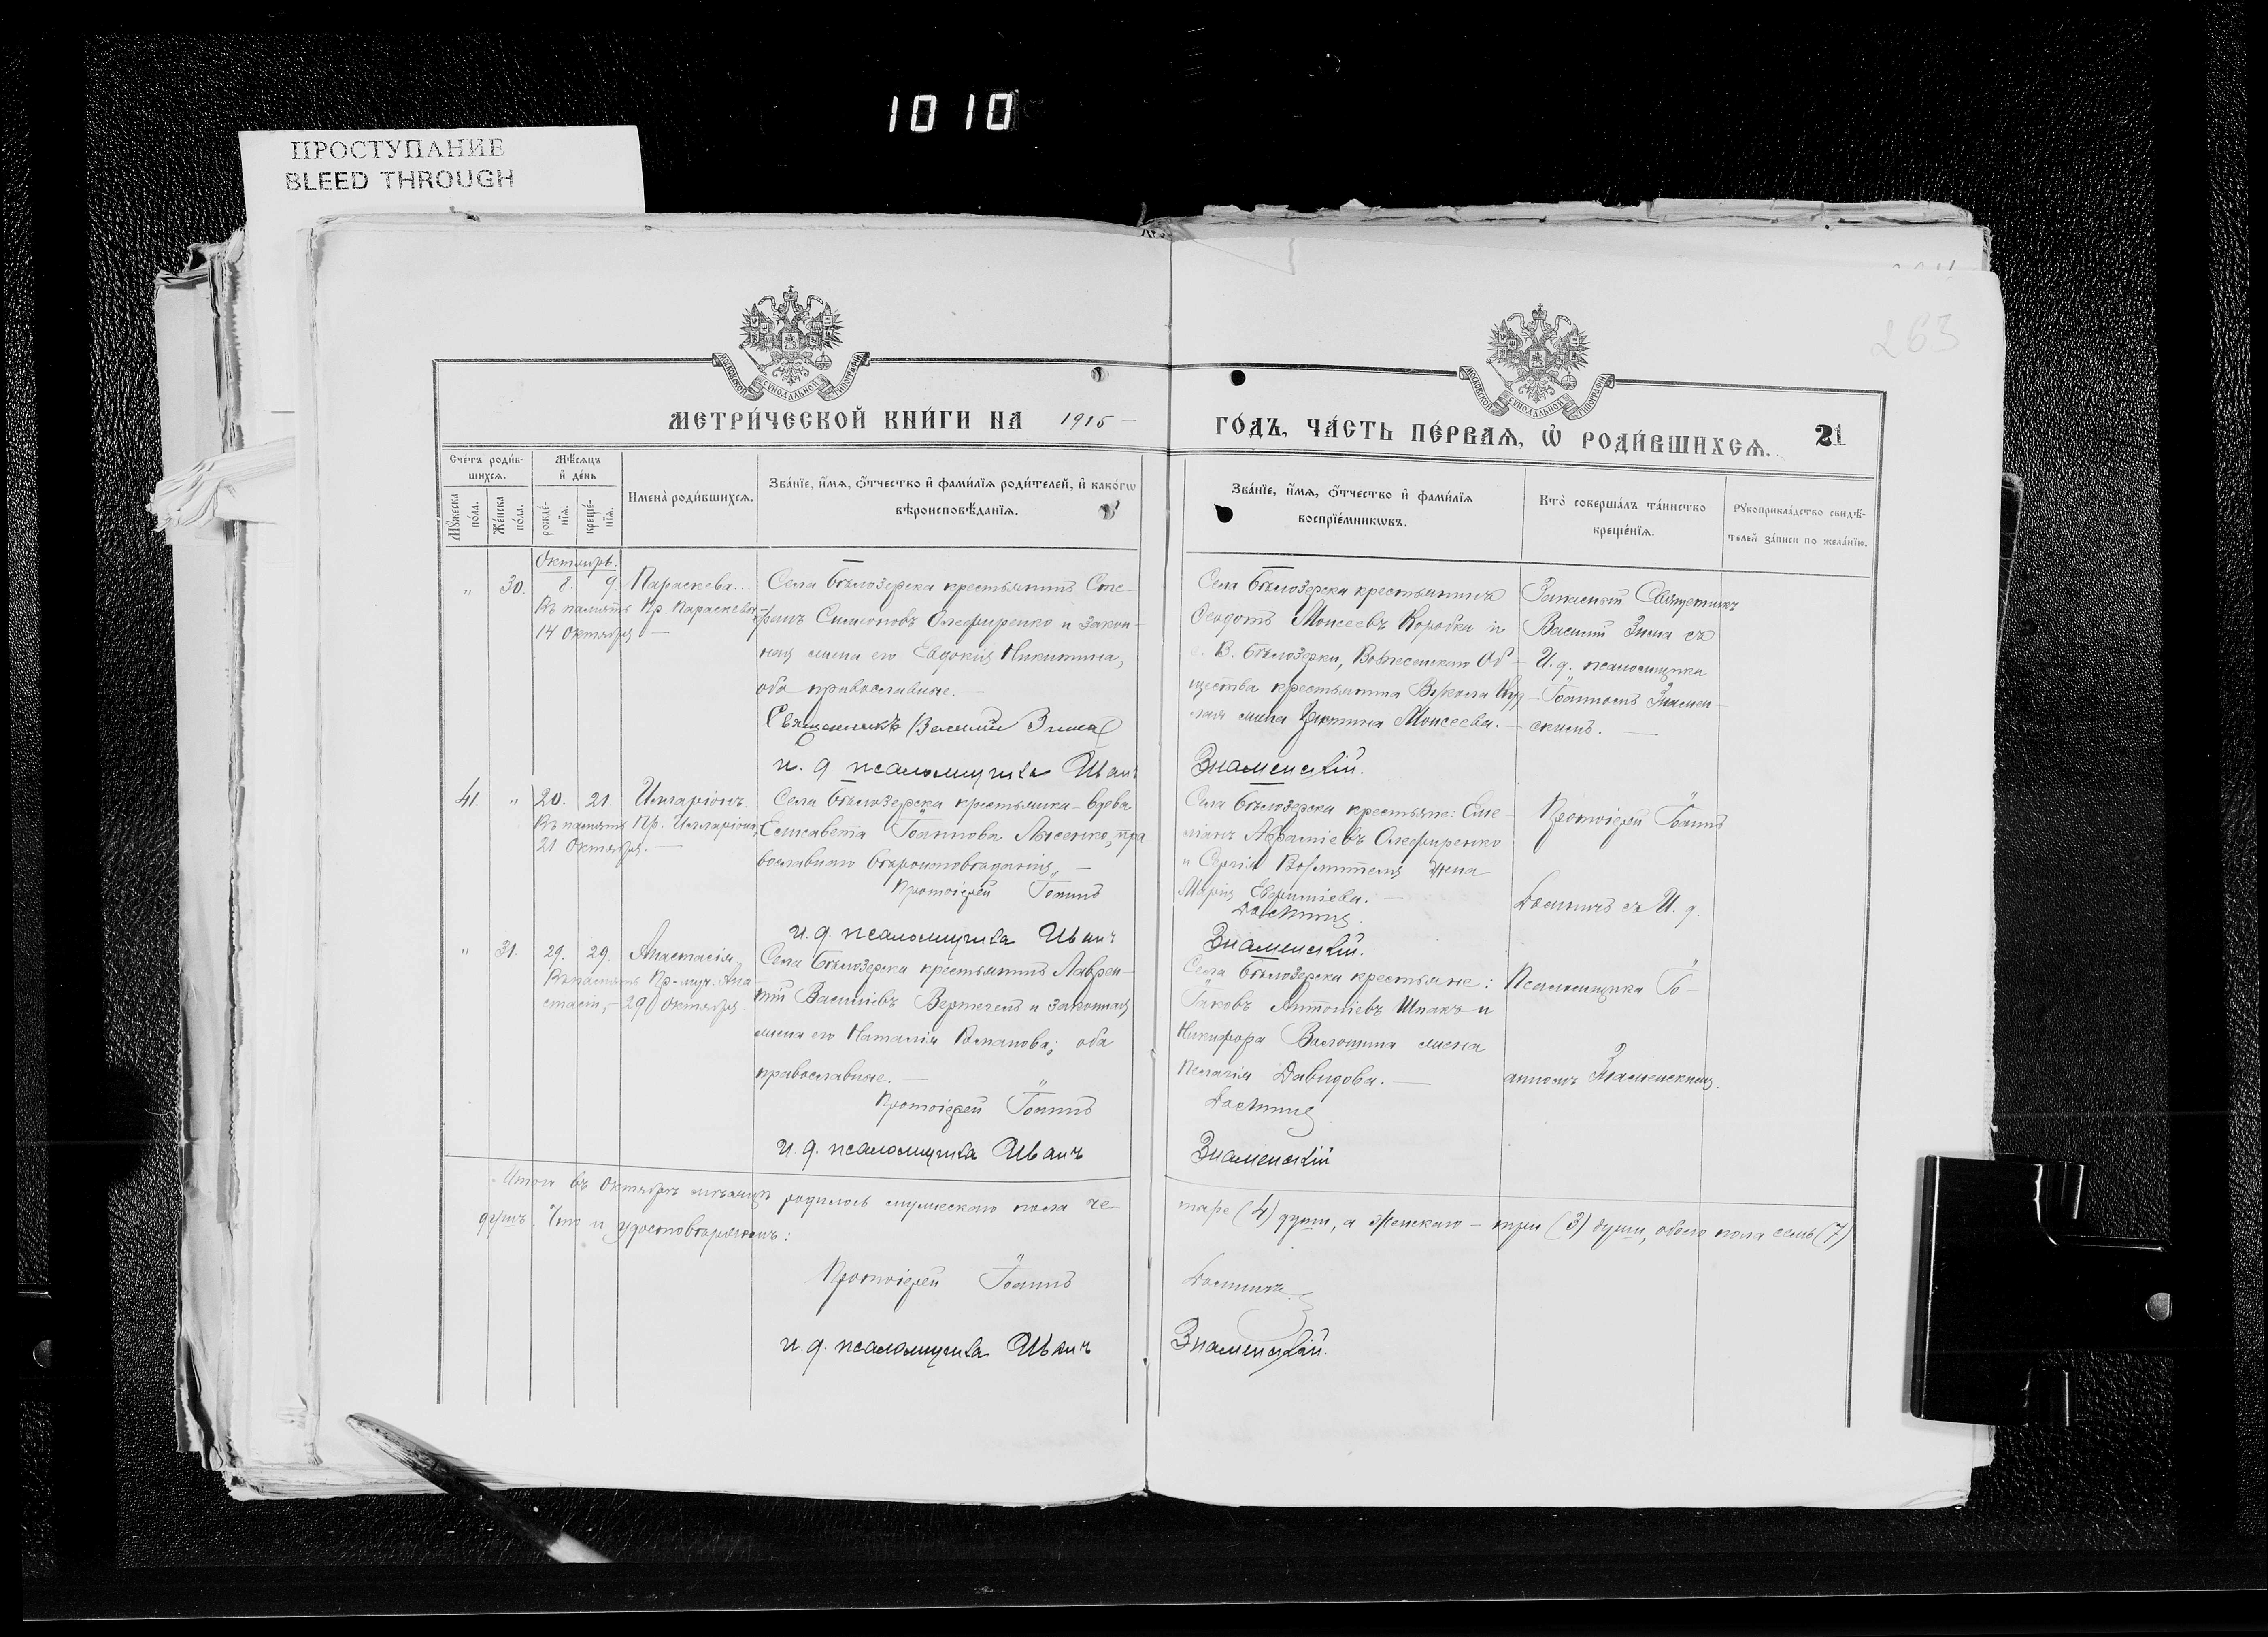 1010
ПРОСТУПАНИЕ
BLEED THROUGH
263
МОСКОВСКОЙ СѴНОДАЛЬНОЙ ТИПОГРАФІИ
МОСКОВСКОЙ СѴНОДАЛЬНОЙ ТИПОГРАФІИ
МЕТРИ́ЧЕСКОЙ КНИ́ГИ НА 1915 –
ГО́ДЪ, ЧА́СТЬ ПЕ́РВАѦ, Ѡ҆ РОДИ́ВШИХСѦ. 21
Сче́тъ роди́в-
шихсѧ.
Мꙋ́жеска по́ла.
Же́нска по́ла.
Мѣ́сѧцъ
и҆ де́нь
рожде́-
нїѧ.
креще́-
нїѧ.
Имена̀ роди́вшихсѧ.
Зва́нїе, и҆́мѧ, ѻ҆́тчество и҆ фами́лїѧ роди́телей, и҆ како́гѡ
вѣроисповѣ́данїѧ.
Зва́нїе, и҆́мѧ, ѻ҆́тчество и҆ фами́лїѧ
воспрїе́мникѡвъ.
Кто̀ соверша́лъ та́инство
креще́нїѧ.
Рꙋкоприкла́дство свидѣ́-
телей за́писи по жела́нїю.
Октябрь.
" 30. 8. 9. Параскева.
Въ память Пр. Параскевы
14 Октября –
Села Бѣлозерска крестьянинъ Сте-
фанъ Симеоновъ Олефиренко и закон-
ная жена его Евдокія Никитина,
оба православные. –
Священникъ Василій Зима
и. д. псаломщика Иванъ
Села Бѣлозерска крестьянинъ
Ѳеодотъ Моисеевъ Коробка и
В. Бѣлозерки, Вознесенскаго Об-
щества крестьянина
жена Моисеева. –
Знаменскій.
Запасный Священникъ
Василій Зима съ
И. д. псаломщика
Іоанномъ Знамен-
скимъ. –
41. " 20. 21. Илларіонъ.
Въ память Пр. Илларіона,
21 Октября. –
Села Бѣлозерска крестьянка-вдова
Елисавета Іоаннова Лысенко, пра-
вославнаго вѣроисповѣданія. –
Протоіерей Іоаннъ
и. д. псаломщика Иванъ
Села Бѣлозерска крестьяне: Еме-
ліанъ Авраміевъ Олефиренко
и Сергія жена
Марія Евфиміева. –
Знаменскій.
Протоіерей Іоаннъ
съ И. д.
" 31. 29. 29. Анастасія,
Въ память Пр-муч. Ана-
стасіи, – 29 Октября.
Села Бѣлозерска крестьянинъ Лаврен-
тій Василіевъ Вертегелъ и законная
жена его Наталія Романова; оба
православные. –
Протоіерей Іоаннъ
и. д. псаломщика Иванъ
Села Бѣлозерска крестьяне:
Іаковъ Антоніевъ Шпакъ и
Никифора Волошина жена
Пелагія Давидова. –
Знаменскій
Псаломщика Іо-
анномъ Знаменскимъ.
Итого въ Октябрѣ мѣсяцѣ родилось мужескаго пола че-
тыре (4) души, а женскаго – три (3) души, обоего пола семь (7)
душъ. Что и удостовѣряемъ:
Протоіерей Іоаннъ
и. д. псаломщика Иванъ
Знаменскій.